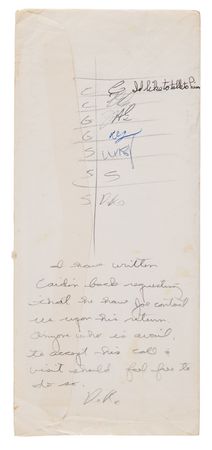 C
I'd like to talk to him
C
G
G
S
S S
S D.Ro
I have written
back requesting
that he have Joe contact
us upon his return.
Anyone who is avail.
to accept his call &
visit should feel free to
do so.
D.R.